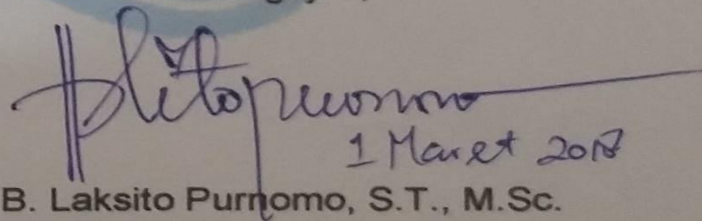 1 Maret 2018
B. Laksito Purnomo, S.T., M.Sc.